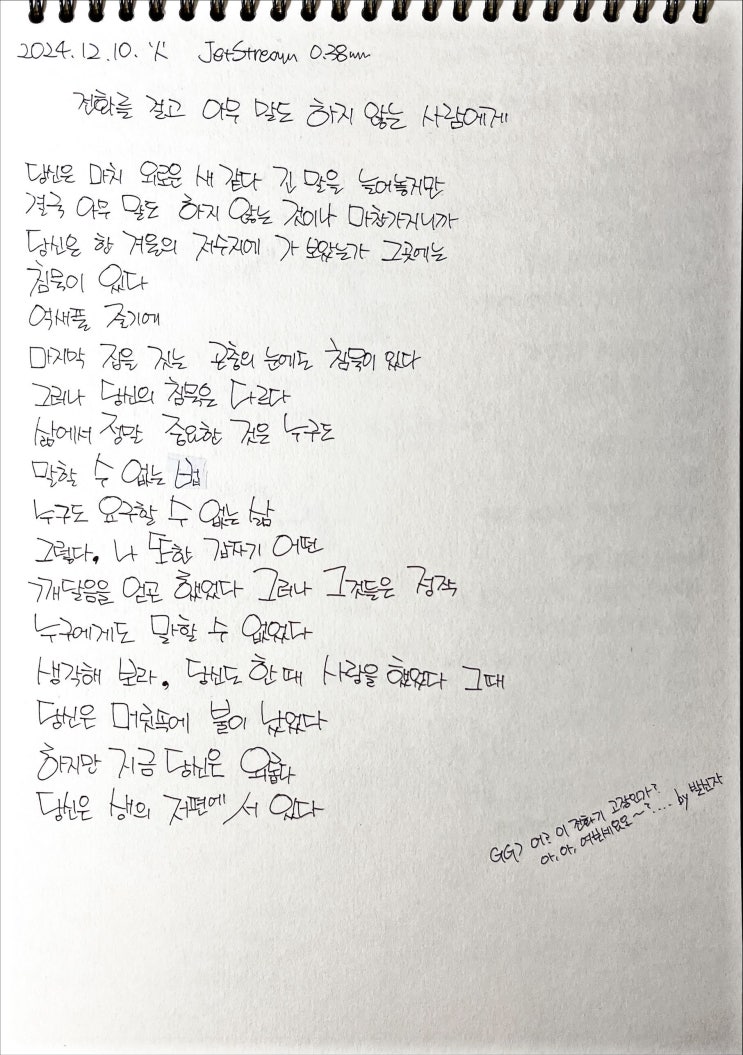 2024.12.10.火 JetStream 0.38mm
전화를 걸고 아무 말도 하지 않는 사람에게
당신은 마치 외로운 새 같다 긴 말을 늘어놓지만
결국 아무 말도 하지 않는 것이나 마찬가지니까
당신은 한 겨울의 저수지에 가 보았는가 그곳에는
침묵이 있다
억새풀 줄기에
마지막 집을 짓는 곤충의 눈에도 침묵이 있다
그러나 당신의 침묵은 다르다
삶에서 정말 중요한 것은 누구도
말할 수 없는 법
누구도 요구할 수 없는 삶
그렇다. 나 또한 갑자기 어떤
깨달음을 얻곤 했었다 그러나 그것들은 정작
누구에게도 말할 수 없었다
생각해 보라. 당신도 한때 사랑을 했었다 그때
당신은 머릿속에 불이 났었다
하지만 지금 당신은 외롭다
당신은 생의 저편에 서 있다
GG) 어? 이 전화기 고장인가?
아, 아, 여보세요오~?.... by 발신자